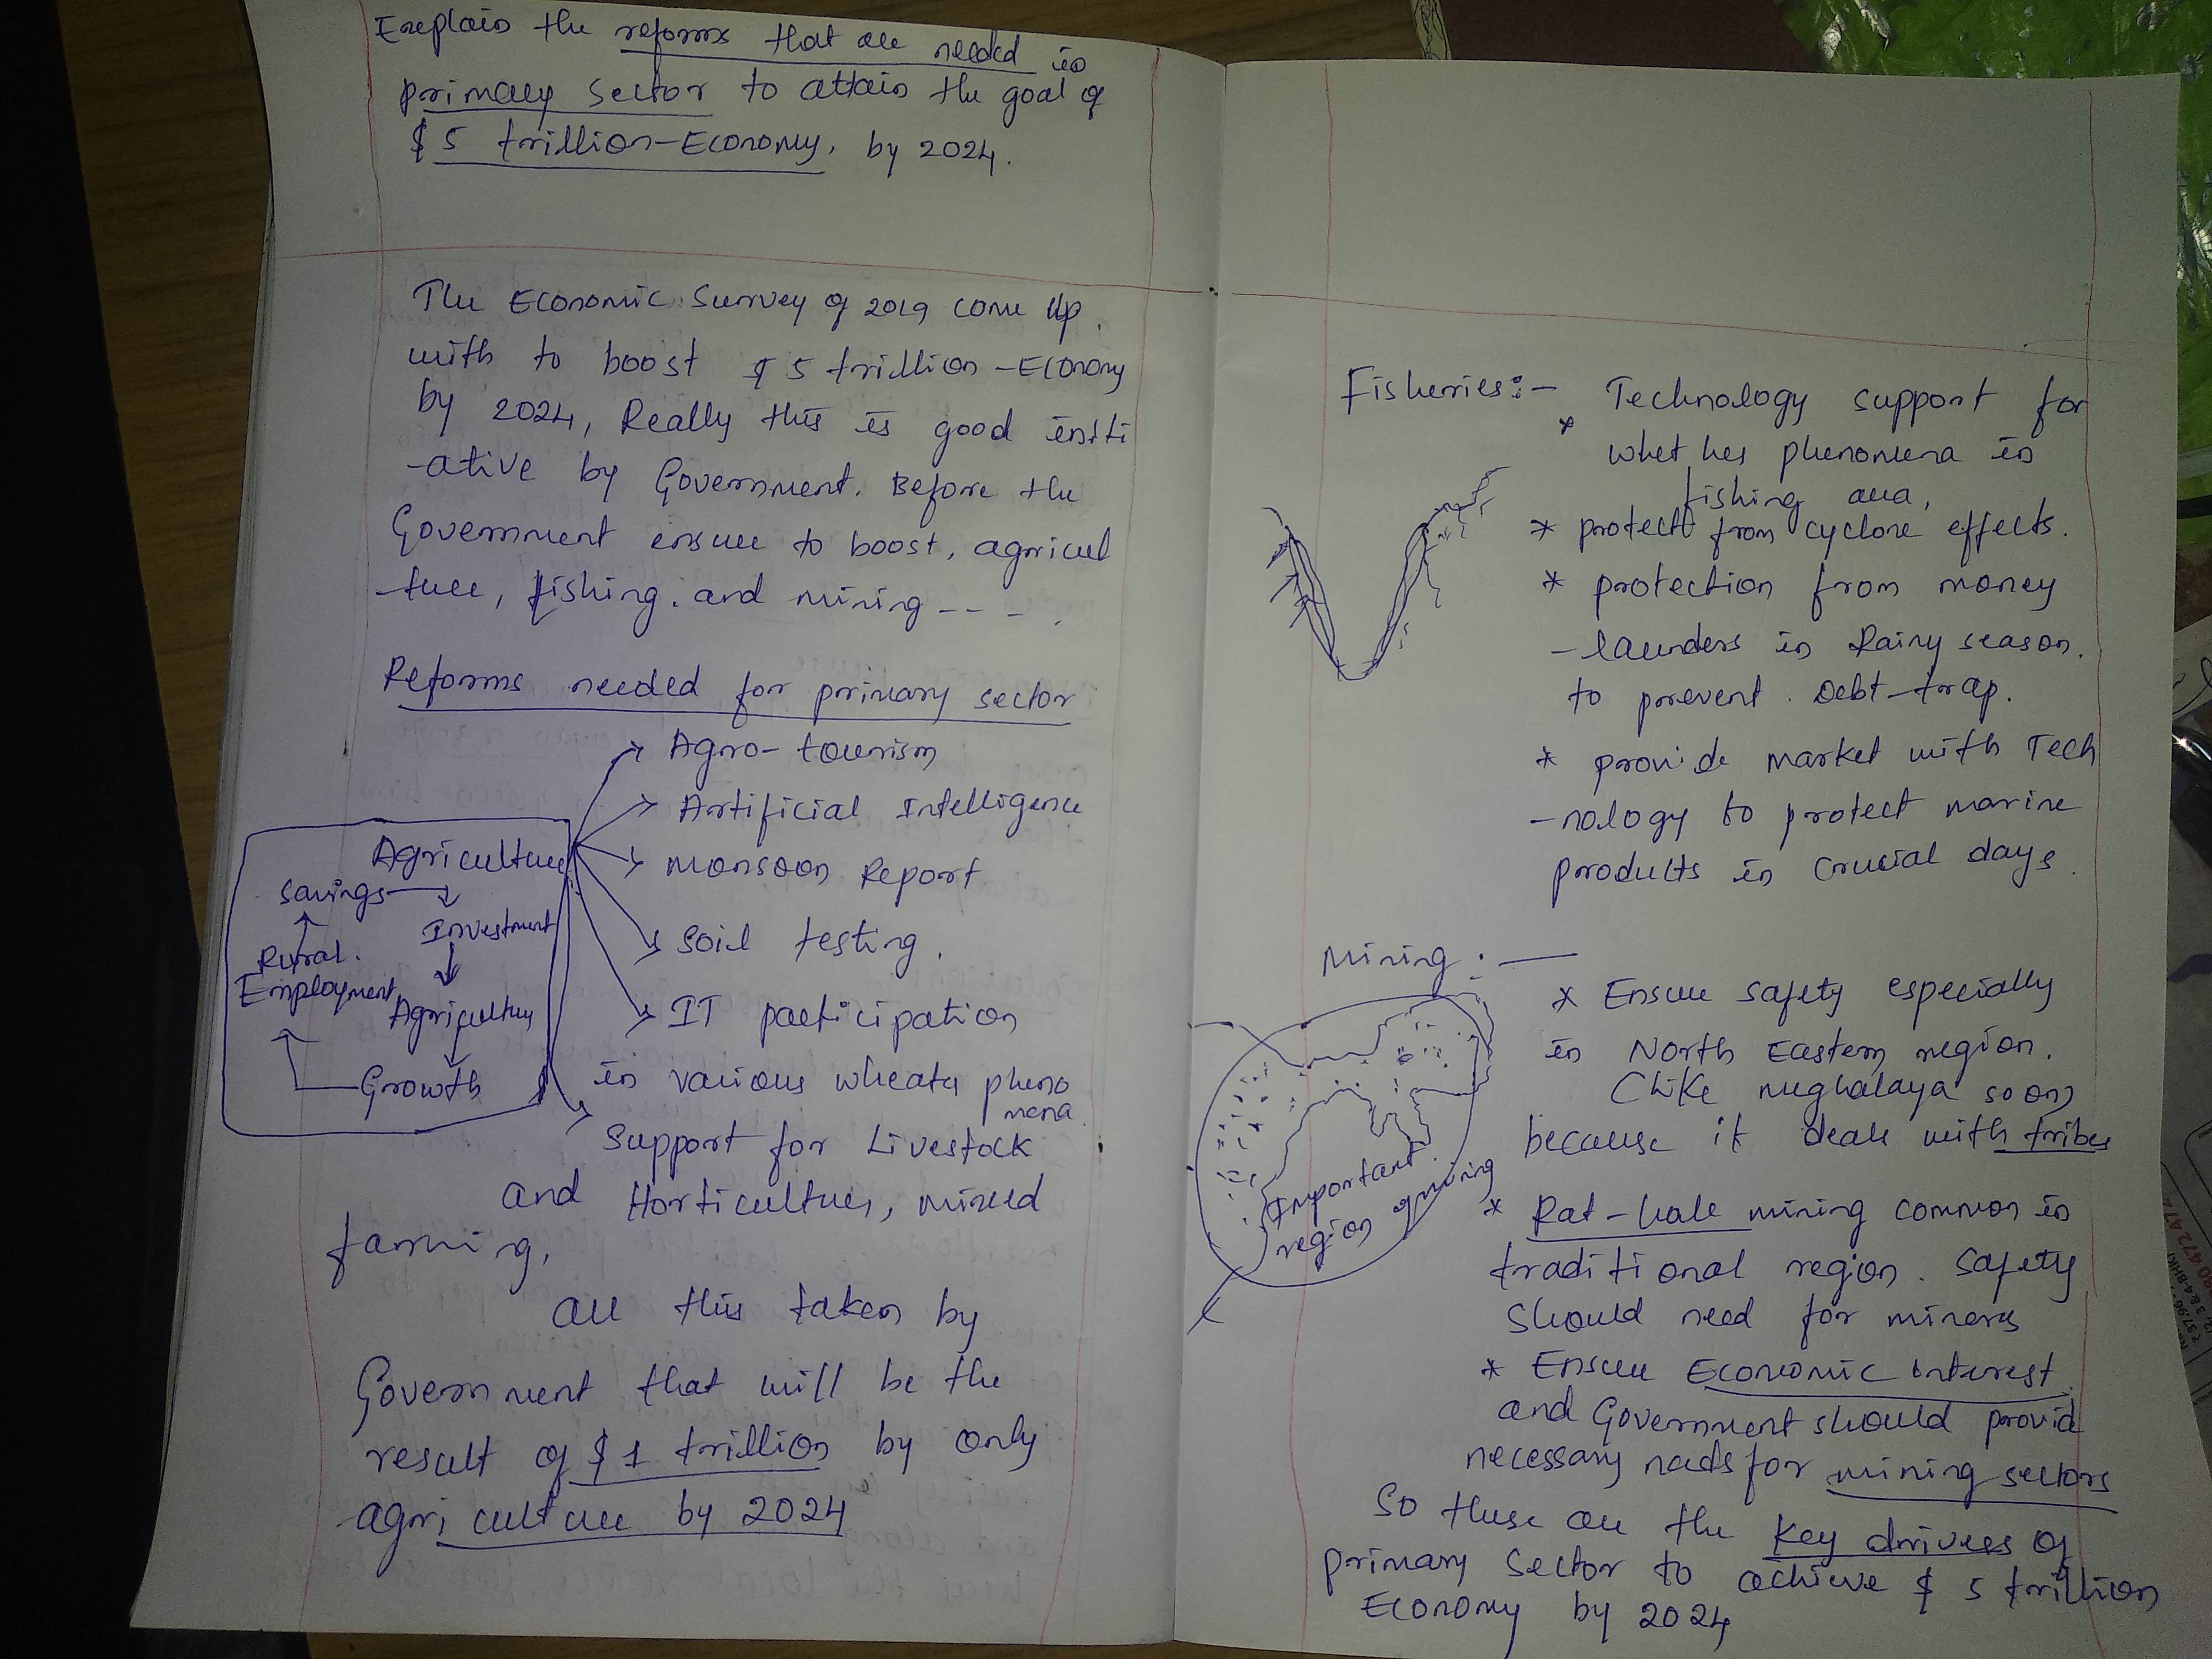 Explain the reforms that are needed in
primary sector to attain the goal of
$ 5 trillion-Economy, by 2024.
The Economic Survey of 2019 come up
with to boost $ 5 trillion-Economy
by 2024, Really this is good initi
-ative by Government. Before the
Government ensure to boost, agricul
-ture, fishing. and mining - - - .
Reforms needed for primary sector
Agro-tourism
Artificial Intelligence
Monsoon Report
Soil testing.
IT participation
in various wheater pheno
mena
Support for Livestock
and Horticulture, mixed
farming,
Agriculture
Savings
Investment
Agriculture
Growth
Rural
Employment
all this taken by
Government that will be the
result of $ 1 trillion by only
agriculture by 2024
Fisheries:-
* Technology support for
whether phenomena in
fishing area,
* protect from cyclone effects.
* protection from money
-launders in Rainy season.
to prevent Debt-trap.
* provide market with Tech
-nology to protect marine
products in crucial days.
Mining:—
* Ensure safety especially
in North Eastern region.
(Like meghalaya soon)
because it deals with tribes
Important
region of mining
* Rat-hole mining common in
traditional region. Safety
should need for miners
* Ensure Economic interest
and Government should provide
necessary needs for mining sectors
So these are the key drivers of
primary sector to achieve $ 5 trillion
Economy by 2024